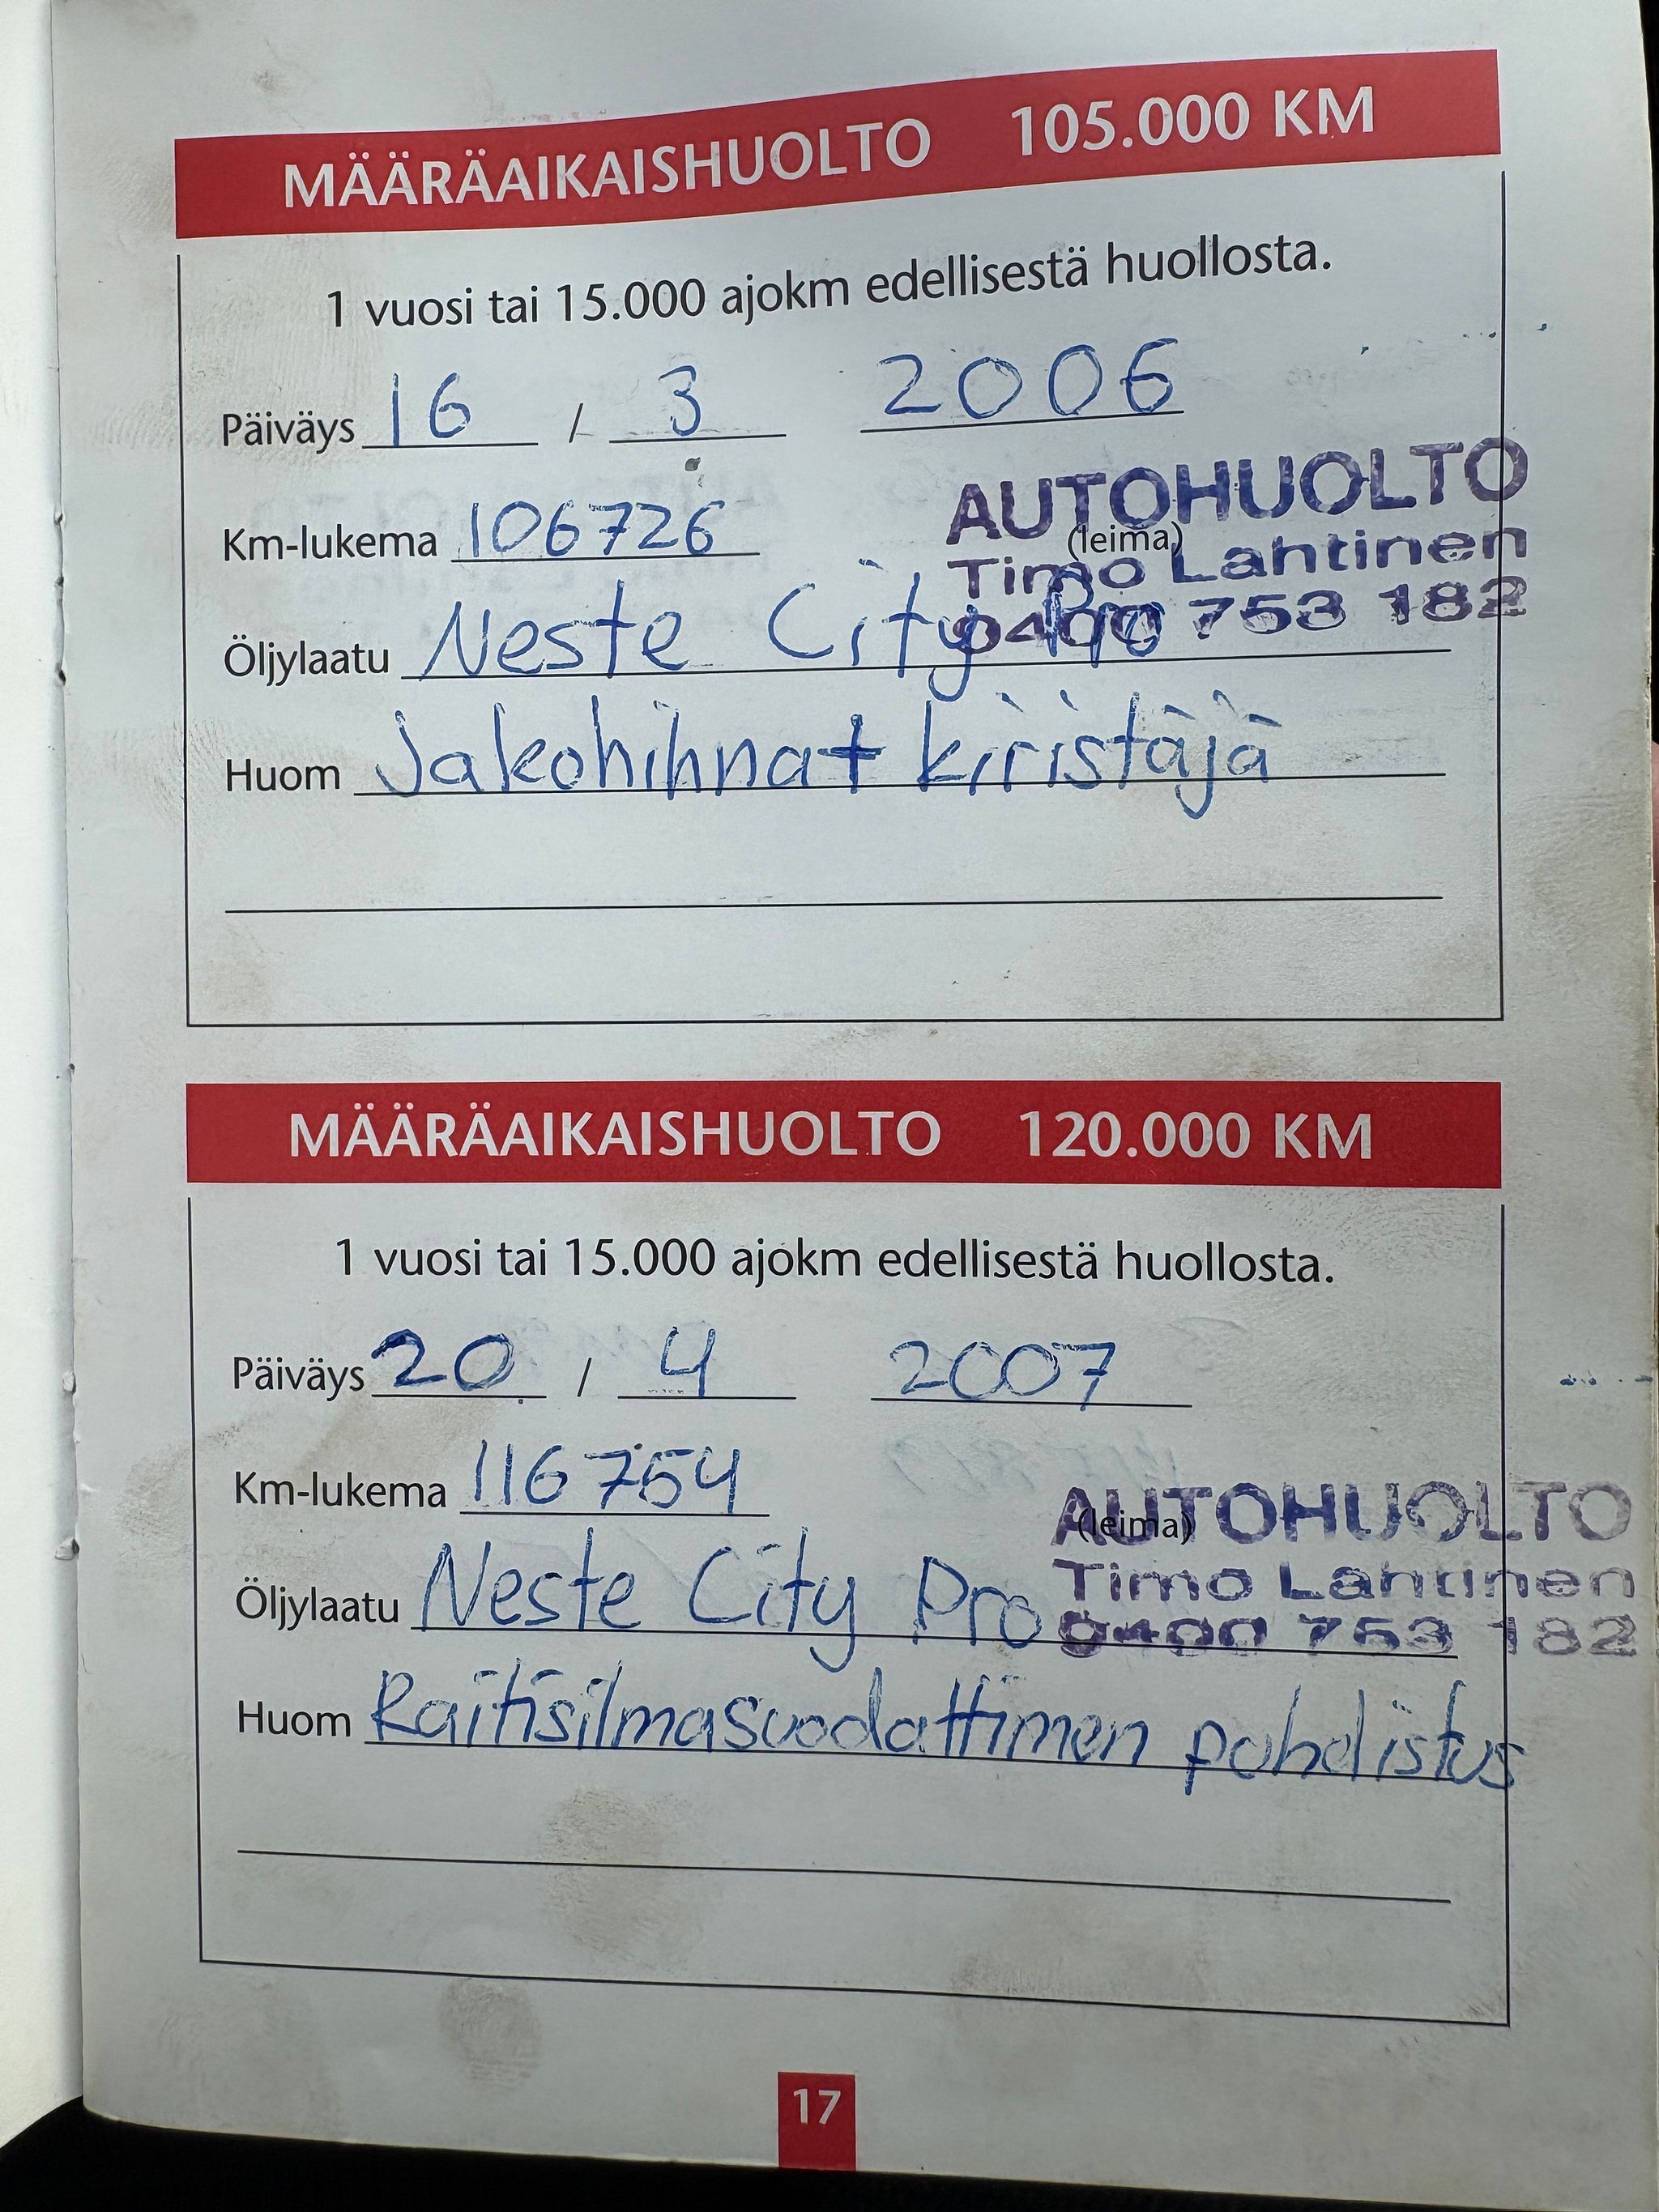 MÄÄRÄAIKAISHUOLTO 105.000 KM
1 vuosi tai 15.000 ajokm edellisestä huollosta.
Päiväys 16 / 3 2006
AUTOHUOLTO
Km-lukema 106726 (leima)
Timo Lahtinen
0400 753 182
Öljylaatu Neste City Pro
Huom Jakohihnat kiristäjä
MÄÄRÄAIKAISHUOLTO 120.000 KM
1 vuosi tai 15.000 ajokm edellisestä huollosta.
Päiväys 20 / 4 2007
Km-lukema 116754
AUTOHUOLTO
(leima)
Timo Lahtinen
Öljylaatu Neste City Pro
0400 753 182
Huom Raitisilmasuodattimen puhdistus
17